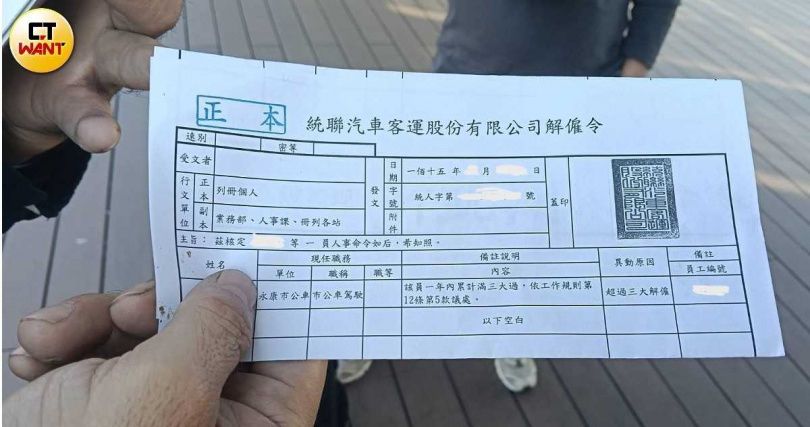 CT
WANT
正本
統聯汽車客運股份有限公司解僱令
速別
密等
受文者
日期
一佰十五 年 月 日
行文單位
正本
列冊個人
發文
字號
統人字第 號
蓋印
副本
業務部、人事課、冊列各站
附件
主旨：茲核定 等 一 員人事命令如后，希知照。
姓名
現任職務
備註說明
異動原因
備註
單位
職稱
職等
內容
員工編號
永康市公車
市公車駕駛
該員一年內累計滿三大過，依工作規則第
12條第5款議處。
超過三大解僱
以下空白